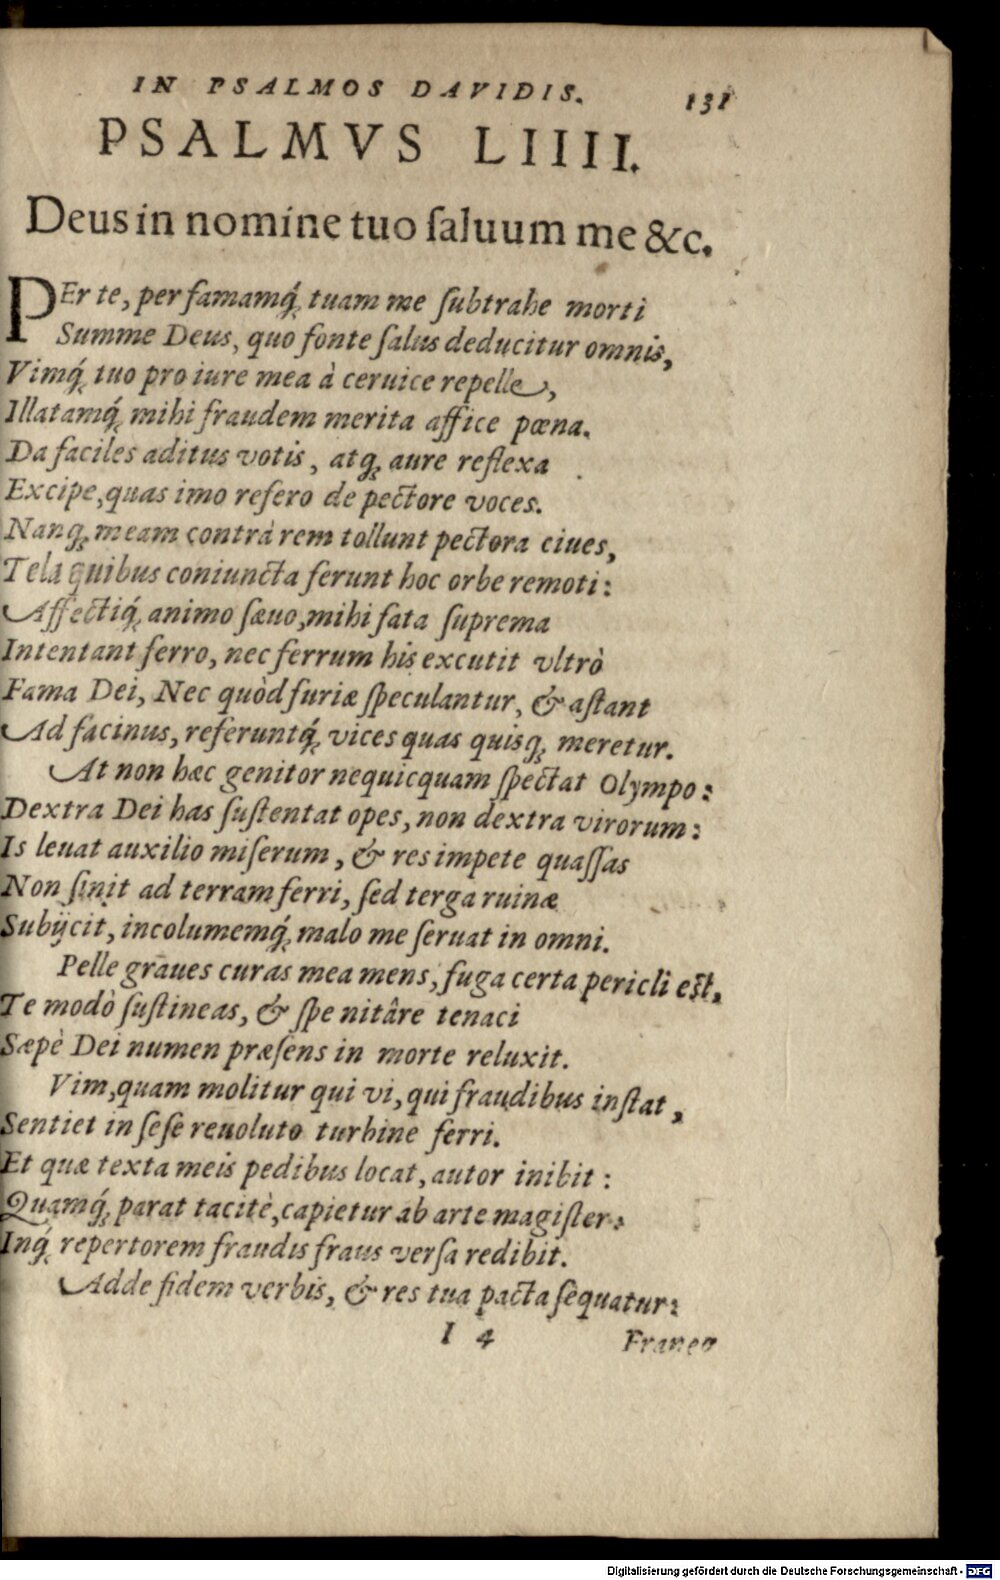 IN PSALMOS DAVIDIS. 131
PSALMVS LIIII.
Deus in nomine tuo ſaluum me &c.
PEr te, per famamq́; tuam me ſubtrahe morti
Summe Deus, quo fonte ſalus deducitur omnis,
Vimq́; tuo pro iure mea à ceruice repelle,
Illatamq́; mihi fraudem merita affice pœna.
Da faciles aditus votis, atq; aure reflexa
Excipe, quas imo refero de pectore voces.
Nanq; meam contrà rem tollunt pectora ciues,
Tela quibus coniuncta ferunt hoc orbe remoti:
Affectiq́; animo ſæuo, mihi fata ſuprema
Intentant ferro, nec ferrum his excutit vltrò
Fama Dei, Nec quòd furiæ ſpeculantur, & aſtant
Ad facinus, referuntq́; vices quas quisq; meretur.
At non hæc genitor nequicquam ſpectat Olympo:
Dextra Dei has ſuſtentat opes, non dextra virorum:
Is leuat auxilio miſerum, & res impete quaſſas
Non ſinit ad terram ferri, ſed terga ruinæ
Subijcit, incolumemq́; malo me ſeruat in omni.
Pelle graues curas mea mens, fuga certa pericli eſt,
Te modò ſuſtineas, & ſpe nitâre tenaci
Sæpè Dei numen præſens in morte reluxit.
Vim, quam molitur qui vi, qui fraudibus inſtat,
Sentiet in ſeſe reuoluto turbine ferri.
Et quæ texta meis pedibus locat, autor inibit:
Quamq́; parat tacitè, capietur ab arte magiſter:
Inq́; repertorem fraudis fraus verſa redibit.
Adde fidem verbis, & res tua pacta ſequatur:
I 4 Franco
Digitalisierung gefördert durch die Deutsche Forschungsgemeinschaft - DFG